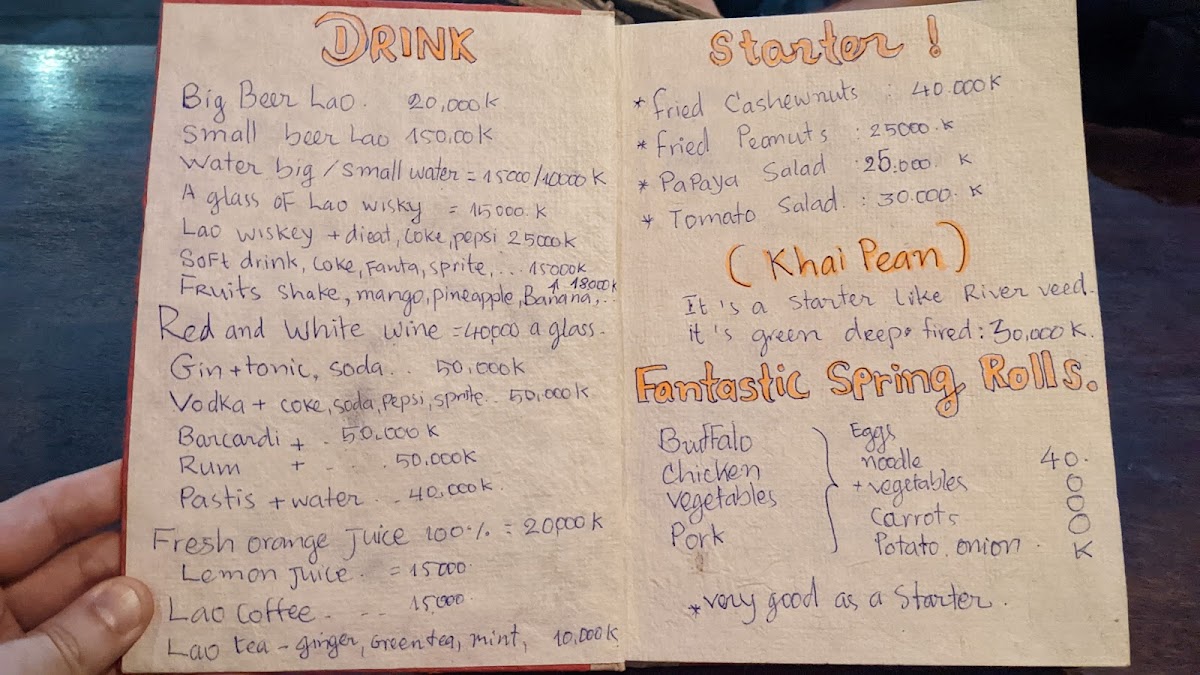 DRINK
Big Beer Lao. 20,000K
Small beer Lao 150,00K
Water big / small water = 15000/10000 K
A glass of Lao wisky = 15000.K
Lao wiskey + dieat, coke, pepsi 25000K
Soft drink, coke, Fanta, sprite, ... 15000K
Fruits shake, mango, pineapple, Banana, .. 18000K
Red and white wine = 40,000 a glass.
Gin + tonic, soda .. 50,000K
Vodka + coke, soda, pepsi, sprite.. 50,000K
Barcardi + . 50.000K
Rum + - . . 50.000K
Pastis + water . . 40,000K.
Fresh orange juice 100% = 20,000 K
Lemon juice. = 15000.
Lao coffee. -- 15.000
Lao tea - ginger, Green tea, mint, 10,000K
Starter !
* Fried Cashewnuts : 40.000K
* Fried Peanuts : 25000.K
* PaPaya Salad : 25.000. K
* Tomato Salad. : 30.000. K
(Khai Pean)
It's a starter like River veed.
it's green deep. fired: 30,000K.
Fantastic Spring Rolls.
Buffalo
Chicken
vegetables
Pork
Eggs
noodle
+ vegetables
Carrots
Potato. onion.
40.
0
0
0
K
* very good as a Starter.